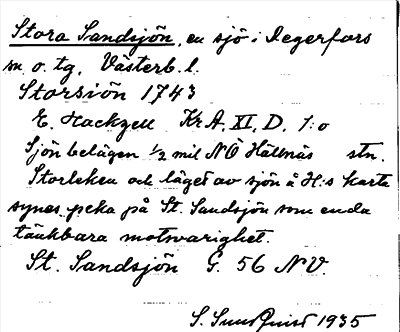 Stora Sandsjön, en sjö i Degerfors
sn o. tg, Västerb. l.
Storsiön 1743
E. Hackzell Kr A. XI, D, 1:o
Sjön belägen 1/2 mil NÖ Hällnäs stn.
Storleken och läget av sjön å H:s karta
synes peka på St. Sandsjön som enda
tänkbara motsvarighet.
St. Sandsjön G. 56 NV.
S. Sundquist 1935